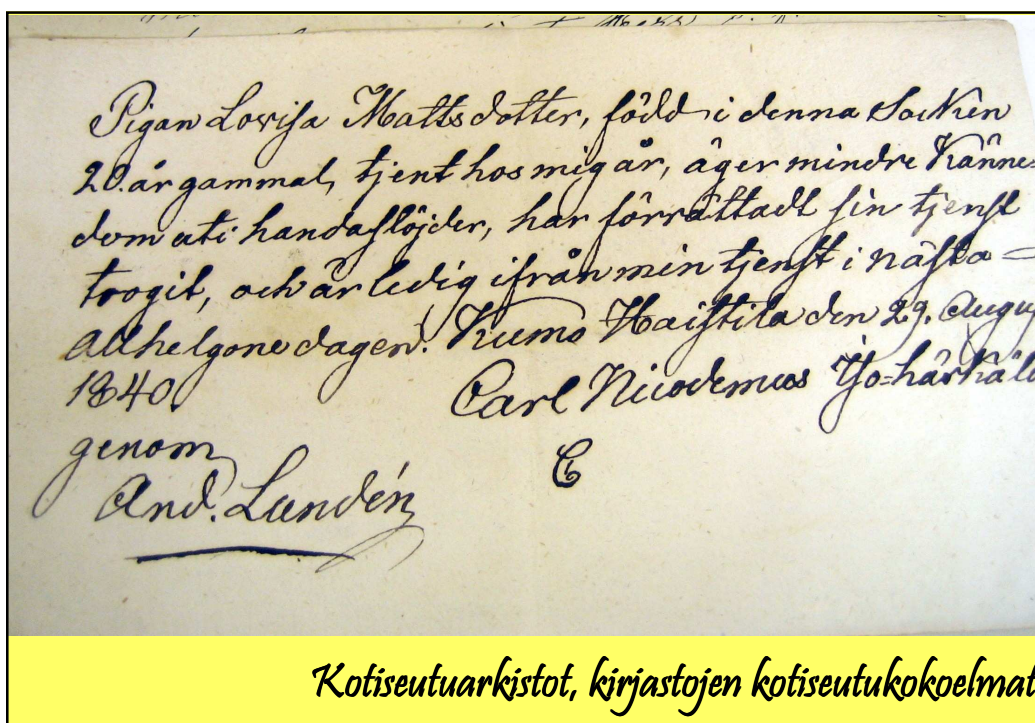 Pigan Lovisa Mattsdotter, född i denna Socken
20. år gammal, tjent hos mig år, äger mindre Känne
dom uti handaslöjder, har förrättadt sin tjenst
troogit, och är ledig ifrån min tjenst i nästa =
Allhelgonedagen. Kumo Haistila den 29. Augu
1840.
Carl Nicodemus
genom
And. Lundén
C
Kotiseutuarkistot, kirjastojen kotiseutukokoelmat